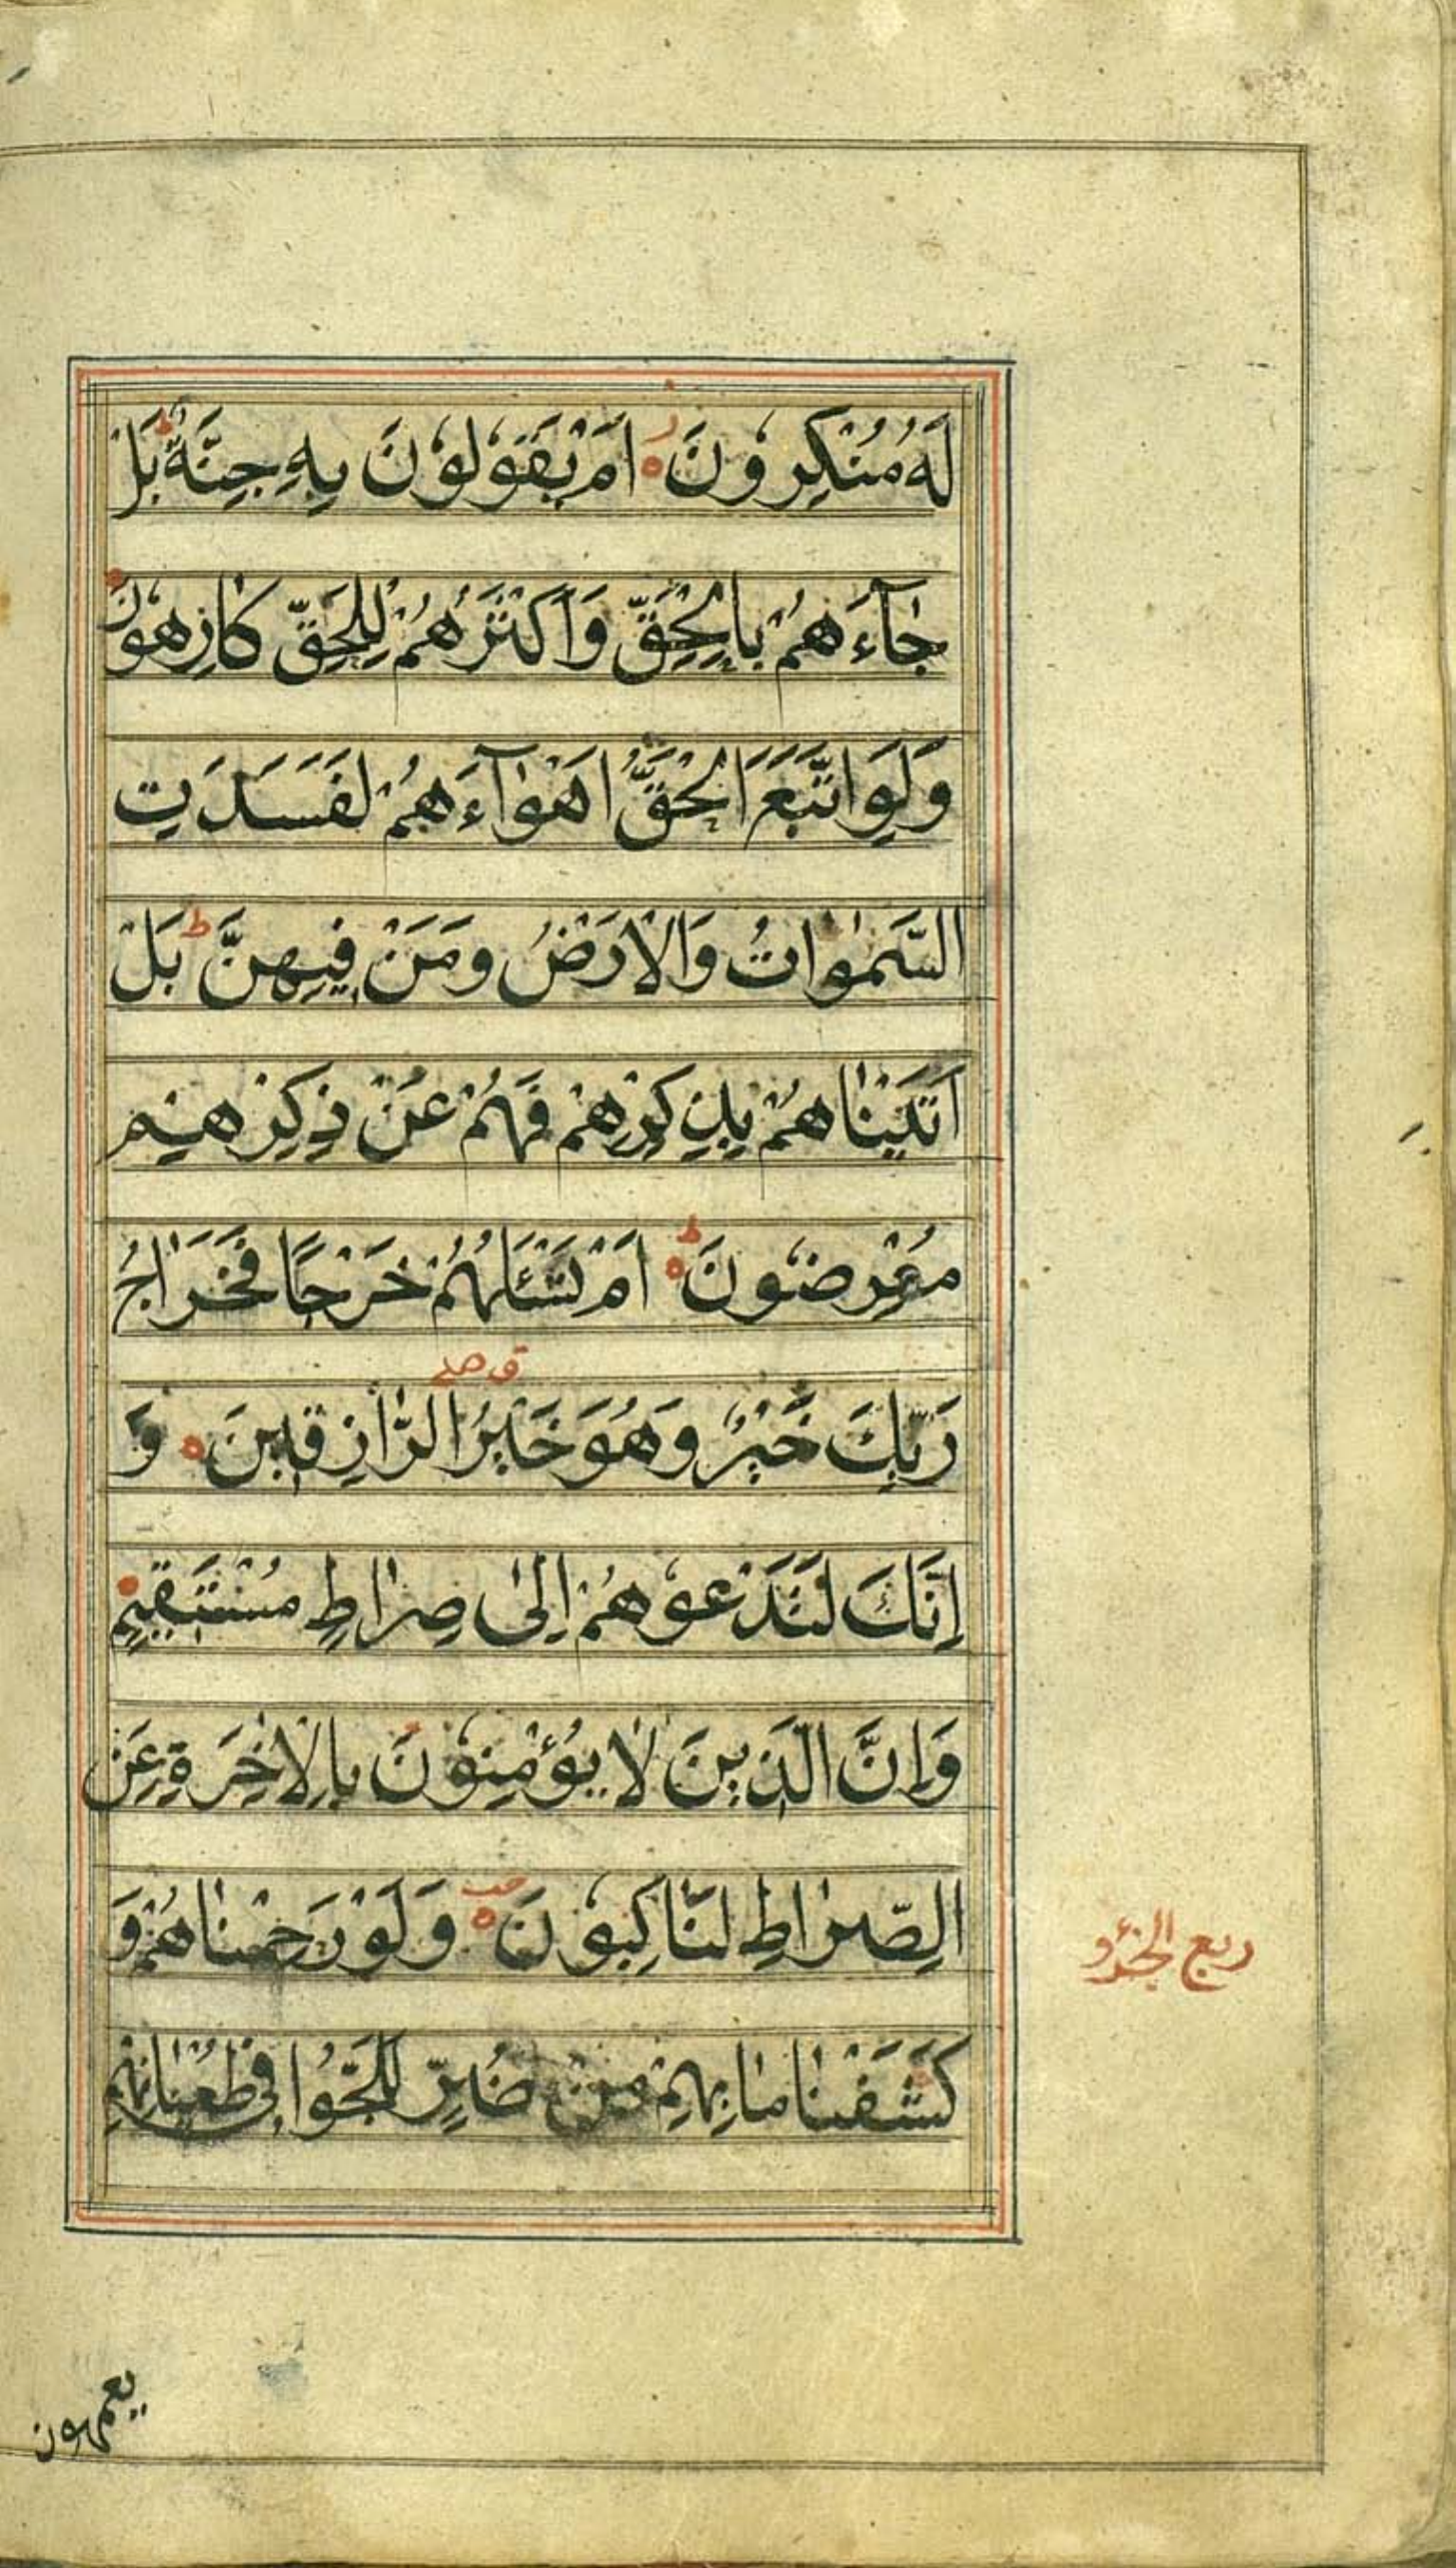 لَهُ مُنْكِرُونَ ز اَمْ يَقُولُونَ بِهِ جِنَّةٌ ط بَلْ
جٰآءَهُمْ بِالْحَقِّ وَاَكْثَرُهُمْ لِلْحَقِّ كٰارِهُونَ
وَلَوِ اتَّبَعَ الْحَقُّ اَهْوٰآءَهُمْ لَفَسَدَتِ
السَّمٰوٰاتُ وَالْاَرْضُ وَمَنْ فِيهِنَّ ط بَلْ
اَتَيْنٰاهُمْ بِذِكْرِهِمْ فَهُمْ عَنْ ذِكْرِهِمْ
مُعْرِضُونَ ط اَمْ تَسْئَلُهُمْ خَرْجًا فَخَرٰاجُ
رَبِّكَ خَيْرٌ ق صلے وَهُوَ خَيْرُ الرّٰازِقِينَ وَ
اِنَّكَ لَتَدْعُوهُمْ اِلىٰ صِرٰاطٍ مُسْتَقِيمٍ
وَاِنَّ الَّذِينَ لٰا يُؤْمِنُونَ بِالْاٰخِرَةِ عَنِ
الصِّرٰاطِ لَنٰاكِبُونَ وَلَوْ رَحِمْنٰاهُمْ وَ
كَشَفْنٰا مٰا بِهِمْ مِنْ ضُرٍّ لَلَجُّوا فِي طُغْيٰانِهِمْ
ربع الجزؤ
يعمهون